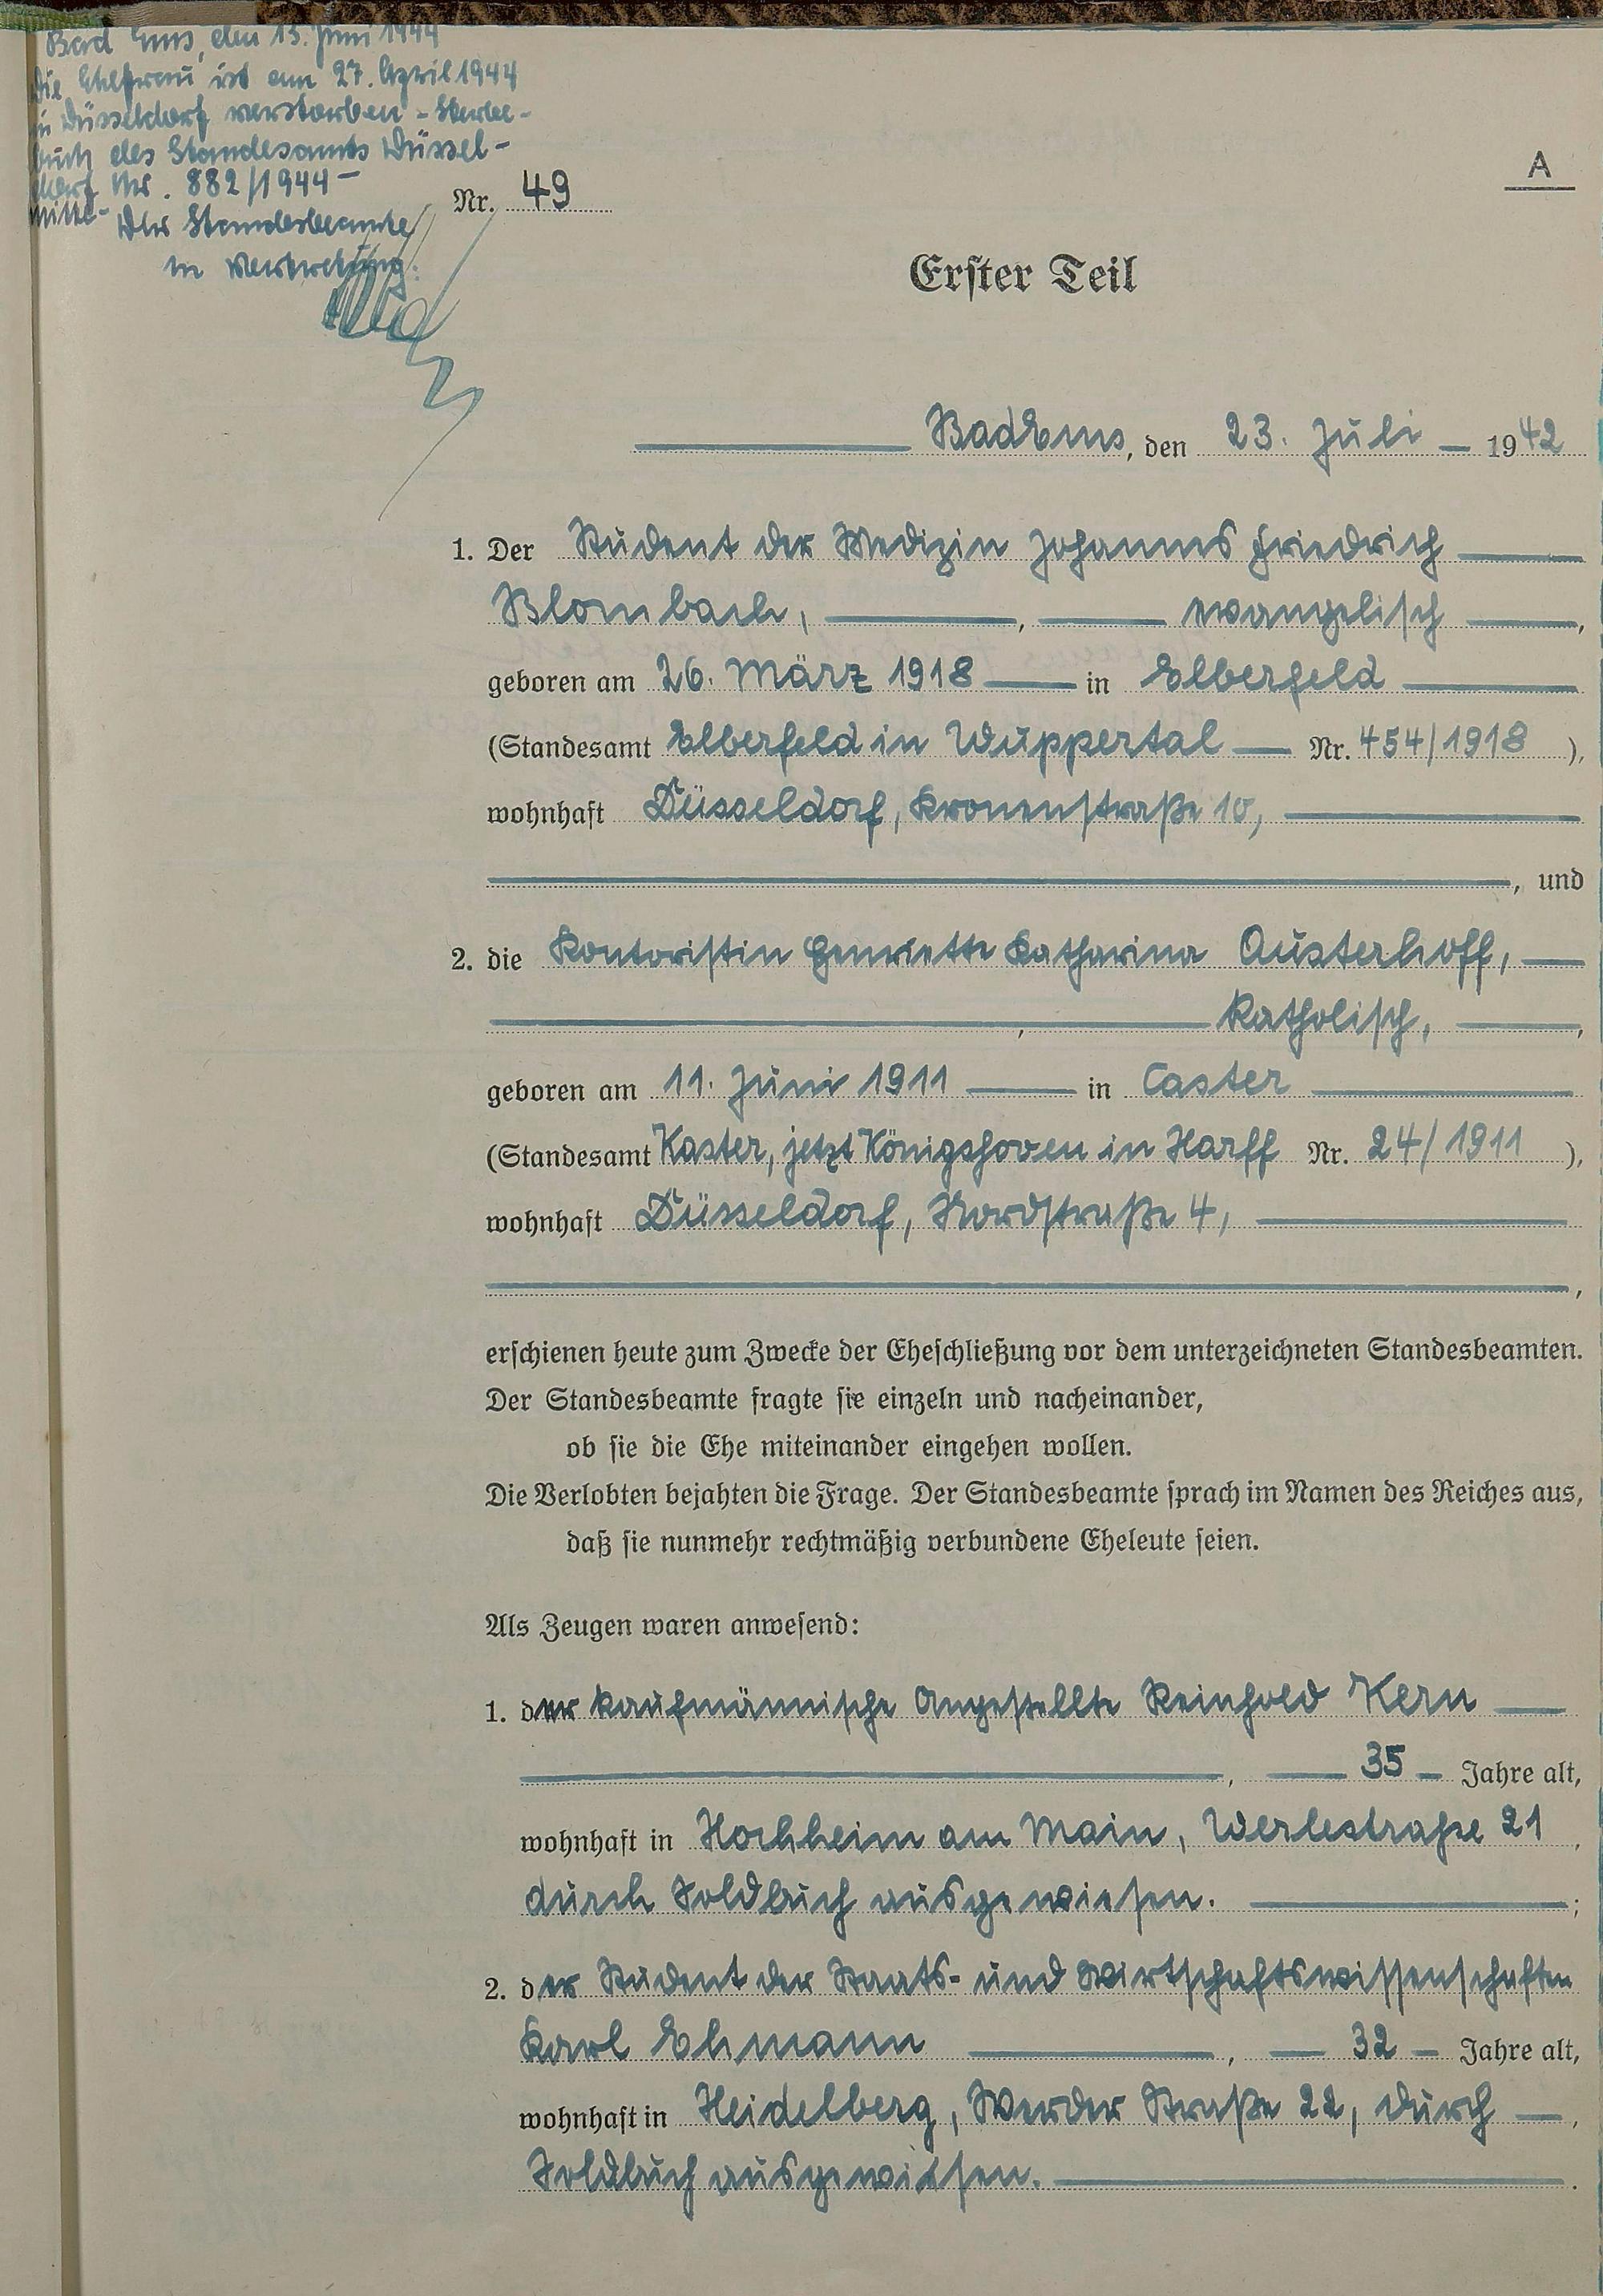 Bad Ems, den 13. Juni 1944
Die Ehefrau ist am 27. April 1944
in Düsseldorf verstorben - Sterbe-
buch des Standesamts Düssel-
dorf Nr. 882/1944 -
Mitte-
Der Standesbeamte
In Vertretung:
Nr. 49
A
Erster Teil
Bad Ems, den 23. Juli 1942
1. Der Student der Medizin Johannes Friedrich
Blombach, , evangelisch ,
geboren am 26. März 1918 in Elberfeld
(Standesamt Elberfeld in Wuppertal Nr. 454/1918 ),
wohnhaft Düsseldorf, Kronenstraße 10,
, und
2. die Kontoristin Henriette Katharina Austerhoff,
, katholisch, ,
geboren am 11. Juni 1911 in Caster
(Standesamt Kaster, jetzt Königshoven in Harff Nr. 24/1911 ),
wohnhaft Düsseldorf, Nordstraße 4,
,
erschienen heute zum Zwecke der Eheschließung vor dem unterzeichneten Standesbeamten.
Der Standesbeamte fragte sie einzeln und nacheinander,
ob sie die Ehe miteinander eingehen wollen.
Die Verlobten bejahten die Frage. Der Standesbeamte sprach im Namen des Reiches aus,
daß sie nunmehr rechtmäßig verbundene Eheleute seien.
Als Zeugen waren anwesend:
1. der kaufmännische Angestellte Reinhold Kern
, 35 Jahre alt,
wohnhaft in Hochheim am Main, Werlestraße 21 ,
durch Soldbuch ausgewiesen. ;
2. der Student der Staats- und Wirtschaftswissenschaften
Karl Ehmann , 32 Jahre alt,
wohnhaft in Heidelberg, Werder Straße 22, durch ,
Soldbuch ausgewiesen. .